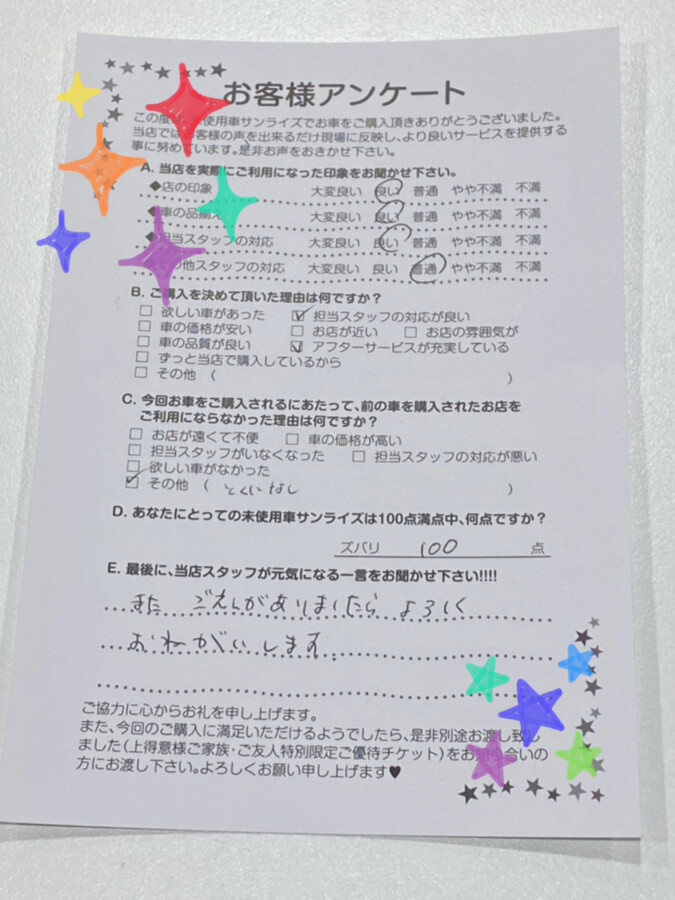 お客様アンケート
この度は、未使用車サンライズでお車をご購入頂きありがとうございました。
当店ではお客様の声を出来るだけ現場に反映し、より良いサービスを提供する
事に努めています。是非お声をおきかせ下さい。
A. 当店を実際にご利用になった印象をお聞かせ下さい。
◆店の印象 大変良い 良い 普通 やや不満 不満
◆車の品揃え 大変良い 良い 普通 やや不満 不満
◆担当スタッフの対応 大変良い 良い 普通 やや不満 不満
その他スタッフの対応 大変良い 良い 普通 やや不満 不満
B. ご購入を決めて頂いた理由は何ですか?
□ 欲しい車があった ☑ 担当スタッフの対応が良い
□ 車の価格が安い □ お店が近い □ お店の雰囲気が
□ 車の品質が良い ☑ アフターサービスが充実している
□ ずっと当店で購入しているから
□ その他 ( )
C. 今回お車をご購入されるにあたって、前の車を購入されたお店を
ご利用にならなかった理由は何ですか?
□ お店が遠くて不便 □ 車の価格が高い
□ 担当スタッフがいなくなった □ 担当スタッフの対応が悪い
□ 欲しい車がなかった
☑ その他 ( とくになし )
D. あなたにとっての未使用車サンライズは100点満点中、何点ですか?
ズバリ 100 点
E. 最後に、当店スタッフが元気になる一言をお聞かせ下さい!!!!
また ごえんがありましたら よろしく
おねがいします.
ご協力に心からお礼を申し上げます。
また、今回のご購入に満足いただけるようでしたら、是非別途お渡し致し
ました(上得意様ご家族・ご友人特別限定ご優待チケット)をお知り合いの
方にお渡し下さい。よろしくお願い申し上げます♥